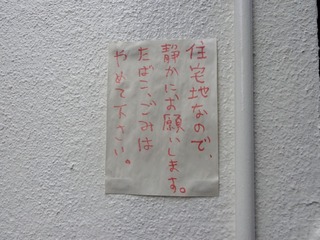 住宅地なので、
静かにお願いします。
たばこ、ごみは
やめて下さい。